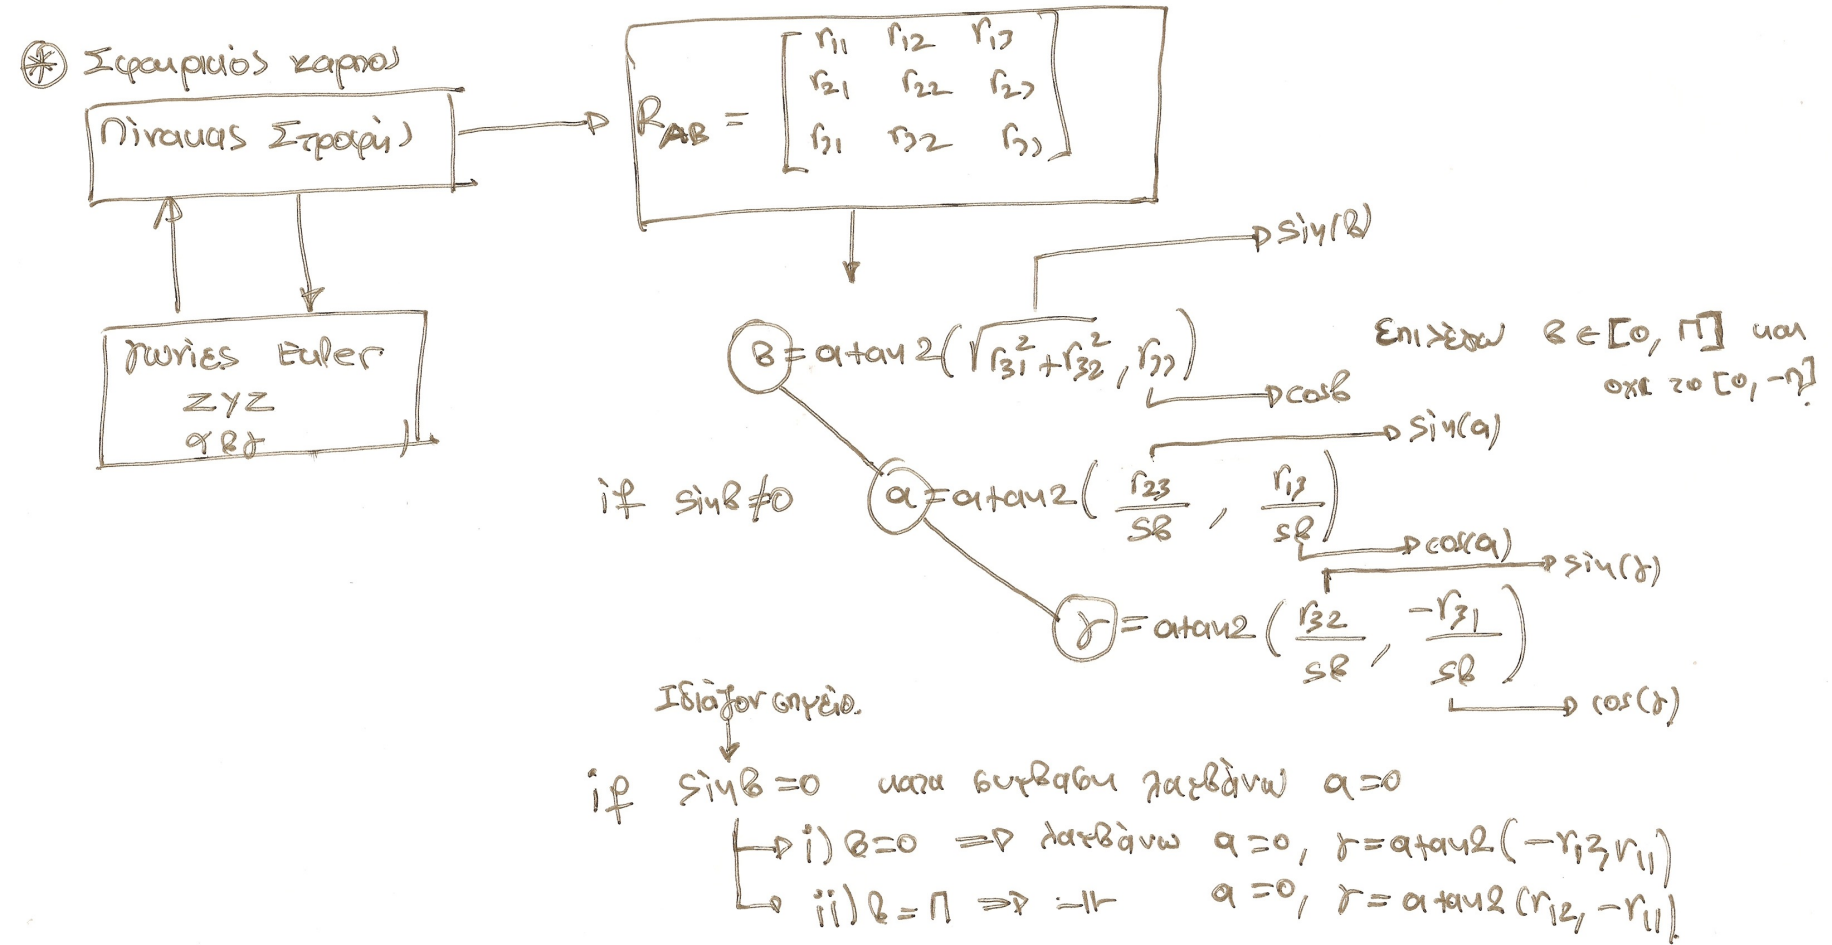 * Σφαιρικός καρπός
Πίνακας Στροφής
R_AB = [ r11 r12 r13
r21 r22 r23
r31 r32 r33 ]
γωνίες Euler
ZYZ
αβγ
sin(β)
β = atan2(√(r31² + r32²), r33)
cosβ
Επιλέγω β ∈ [0, π] και
οχι το [0, -π].
if sinβ≠0
sin(α)
α = atan2( r23/sβ , r13/sβ )
cos(α)
sin(γ)
γ = atan2( r32/sβ , -r31/sβ )
cos(γ)
Ιδιάζον σημείο.
if sinβ=0 κατα συμβαση λαμβάνω α=0
i) β=0 ⇒ λαμβάνω α=0, γ=atan2(-r12, r11)
ii) β=π ⇒ -||- α=0, γ=atan2(r12, -r11)